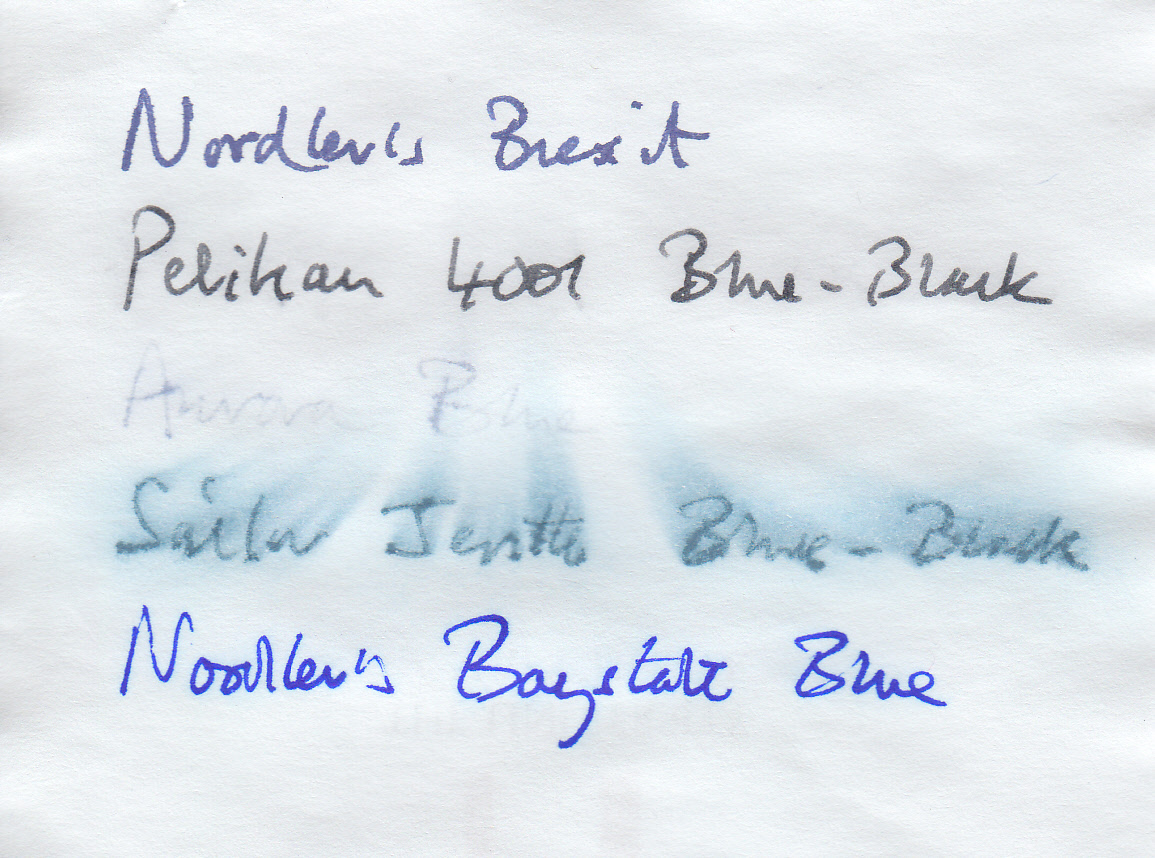 Noodler's Brexit
Pelikan 4001 Blue-Black
Aurora Blue
Sailor Jentle Blue-Black
Noodler's Baystate Blue